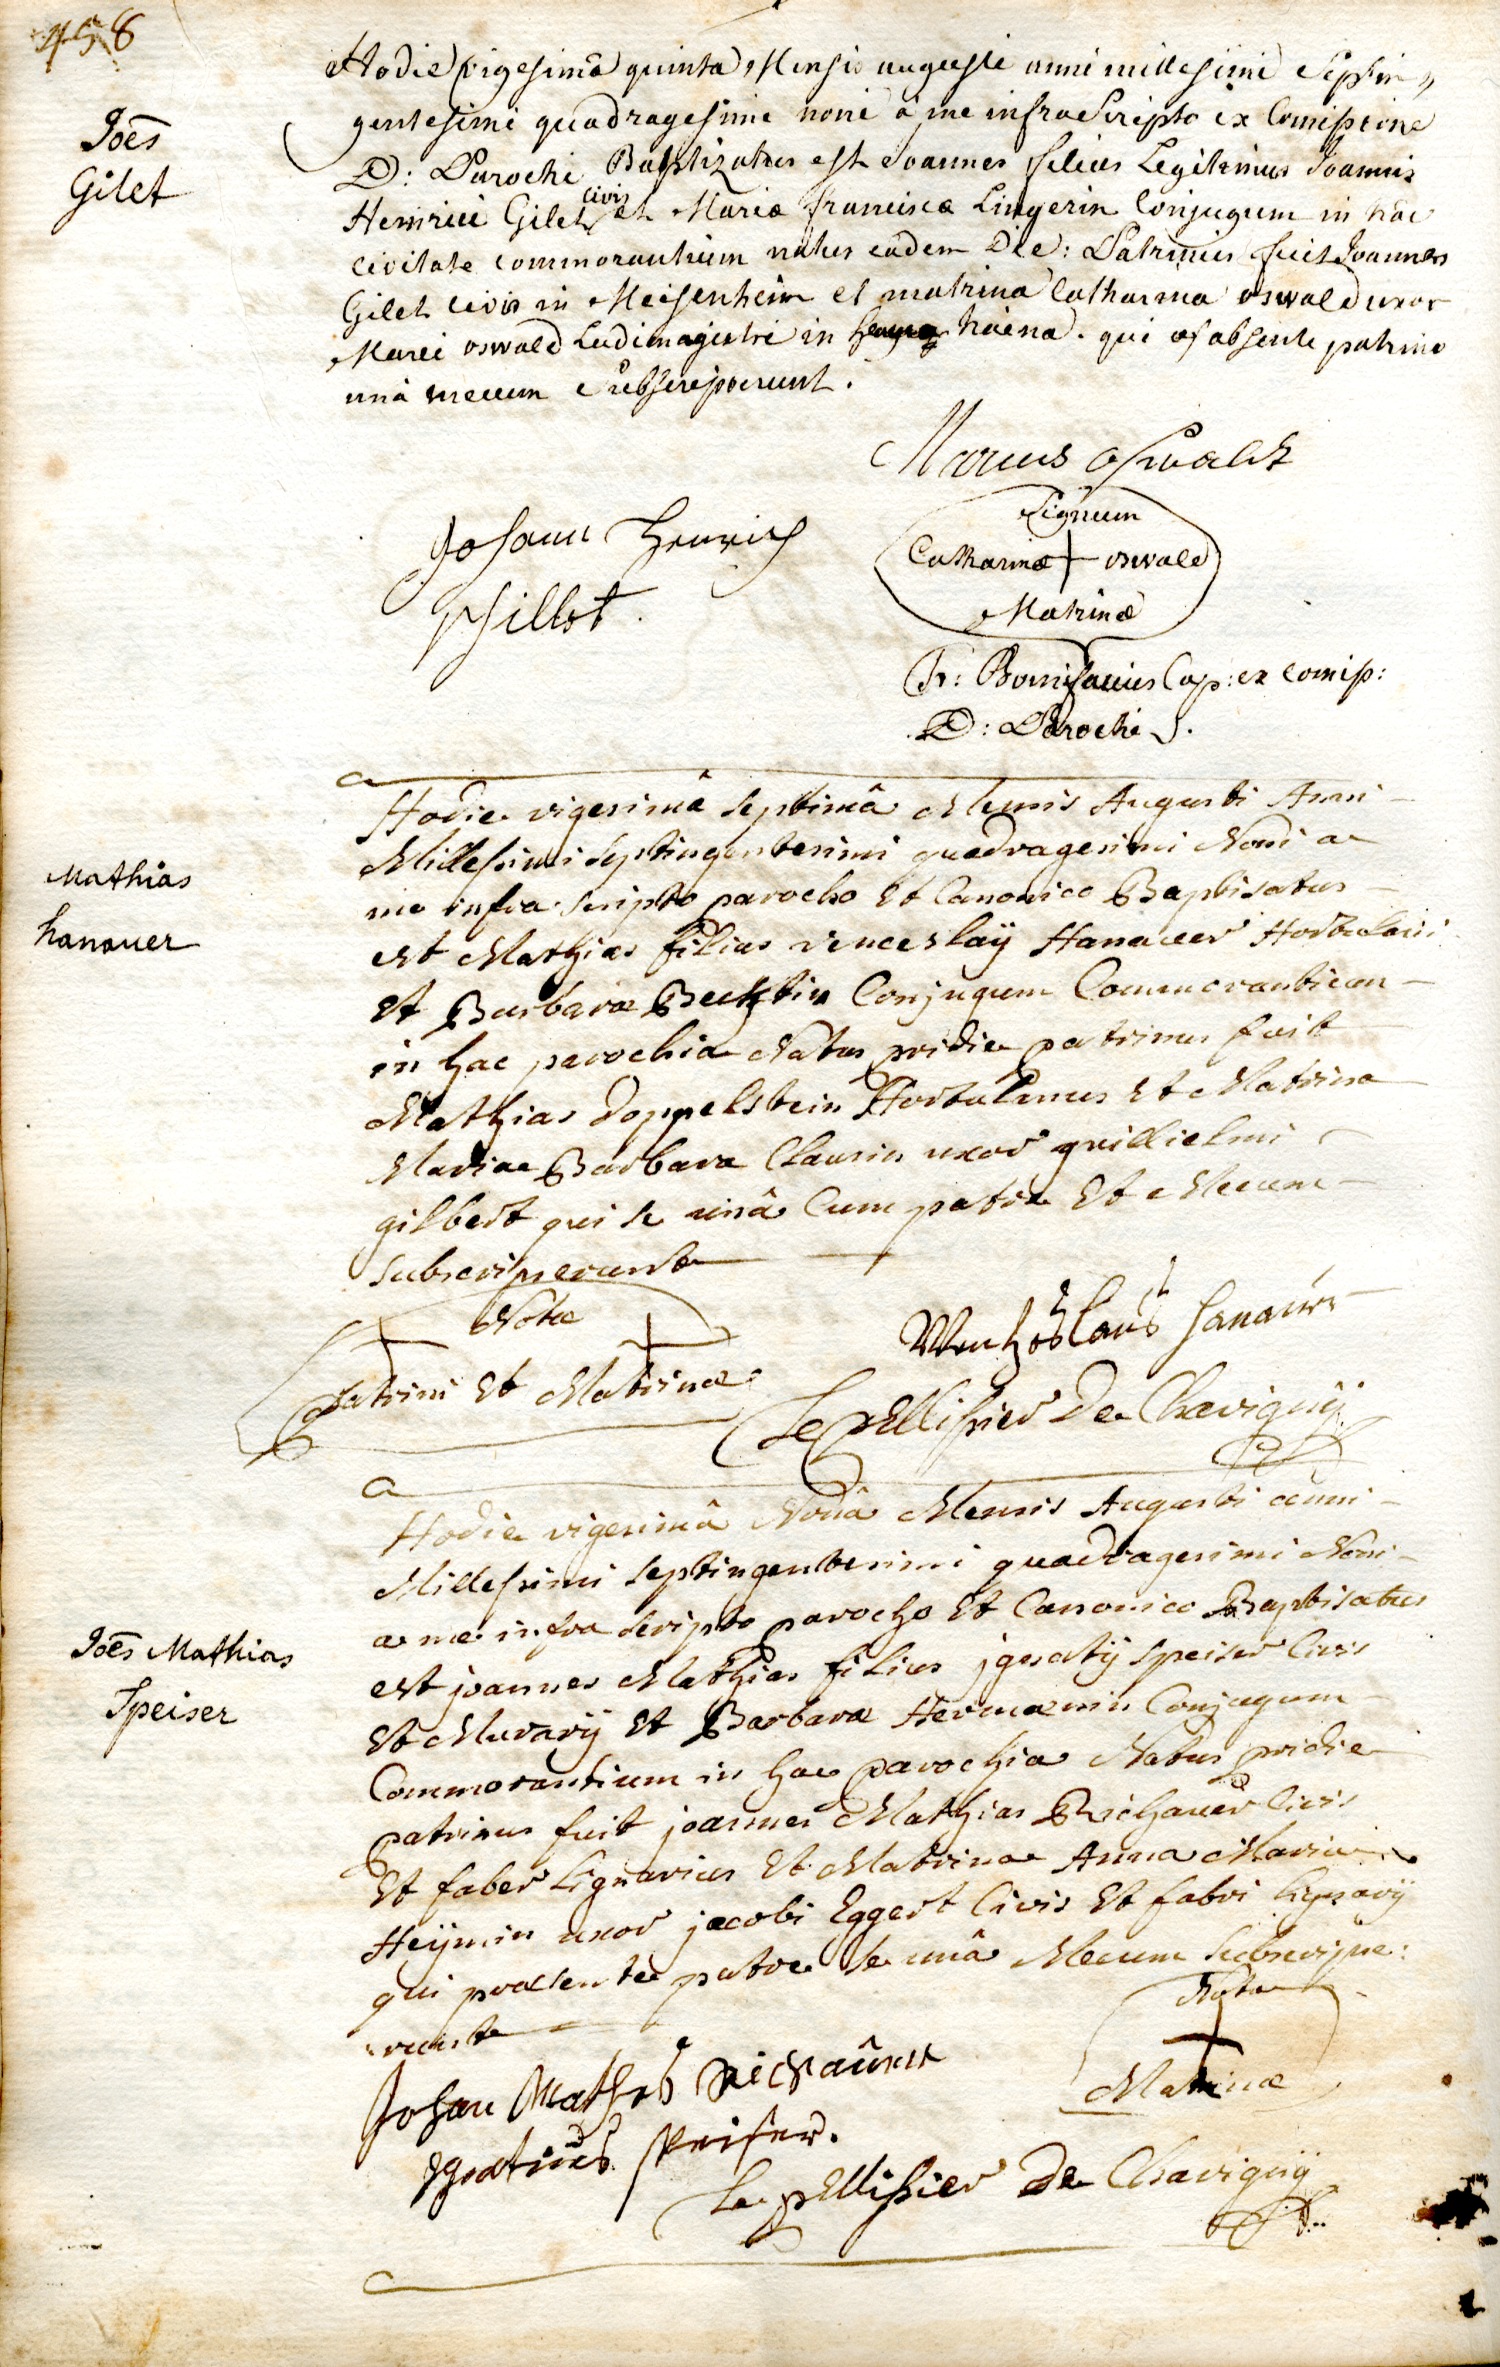 458
Joēs
Gilet
Hodie vigesimâ quinta Mensis augusti anni millesimi Septin„
gentesimi quadragesimi noni à me infraScripto ex Comissione
D: Parochi Baptizatus est Joannes filius Legitimus Joannis
Henrici Gilet civis et Mariæ franciscæ Lingerin Conjugum in hâc
civitate commorantium natus eâdem Die: Patrinus fuit Joannes
Gilet civis in Meisenheim et matrina Catharina oswald uxor
Marci oswald Ludimagistri in haêna. qui absente patrino
unà mecum Subscripserunt.
Marcus oswaldt
Johann Henrich
Gillot.
Signum
Catharinæ + oswald
Matrinæ
Fr: Bonifacius Cap: ex comiss:
D: Parochi
Mathias
hanauer
Hodie vigesimâ septimâ Mensis Augusti Anni
Millesimi septingentesimi quadragesimi Noni a
me infra scripto parocho Et Canonico Baptisatus
est Mathias filius venceslaÿ Hanauer Hortulani
Et Barbaræ Conjugum Commorantium
in hac parochia Natus pridie patrinus fuit
Mathias Doppelstein Hortulanus Et Matrina
Maria Barbara Clausin uxor guillielmi
gilbert qui se unâ Cum patre Et Mecum
subscripserunt
Notæ
+ +
patrini Et Matrinæ
Wentzeslaus hanauer
Le pellissier De Chavignÿ
Joēs Mathias
Speiser
Hodie vigesimâ Nonâ Mensis Augusti anni
Millesimi septingentesimi quadragesimi Noni
a me infra scripto parocho Et Canonico Baptisatus
est joannes Mathias filius jgnatÿ speiser Civis
Et Murarÿ Et Barbaræ Hermanin Conjugum
Commorantium in hac parochia Natus pridie
patrinus fuit joannes Mathias Richauer Civis
Et faber Lignarius Et Matrina Anna Maria
Heÿmin uxor jacobi Eggert Civis Et fabri lignarÿ
qui præsente patre se unâ Mecum subscripse:
runt
Nota
+
Matrinæ
Johan Mathes
Ignatius speiser.
Le pellissier De Chavignÿ